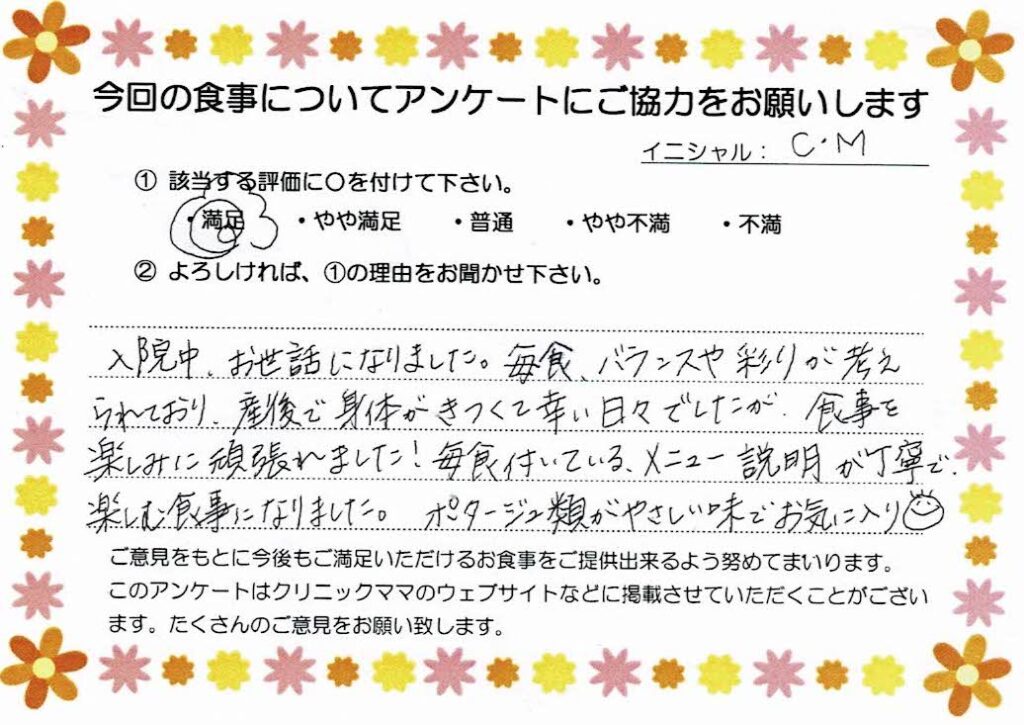 今回の食事についてアンケートにご協力をお願いします
イニシャル： C・M
① 該当する評価に〇を付けて下さい。
・満足 ・やや満足 ・普通 ・やや不満 ・不満
② よろしければ、①の理由をお聞かせ下さい。
入院中、お世話になりました。毎食、バランスや彩りが考え
られており、産後で身体がきつくて幸い日々でしたが、食事を
楽しみに頑張れました！毎食付いている、メニュー説明が丁寧で、
楽しむ食事になりました。 ポタージュ類がやさしい味でお気に入り
ご意見をもとに今後もご満足いただけるお食事をご提供出来るよう努めてまいります。
このアンケートはクリニックママのウェブサイトなどに掲載させていただくことがござい
ます。たくさんのご意見をお願い致します。